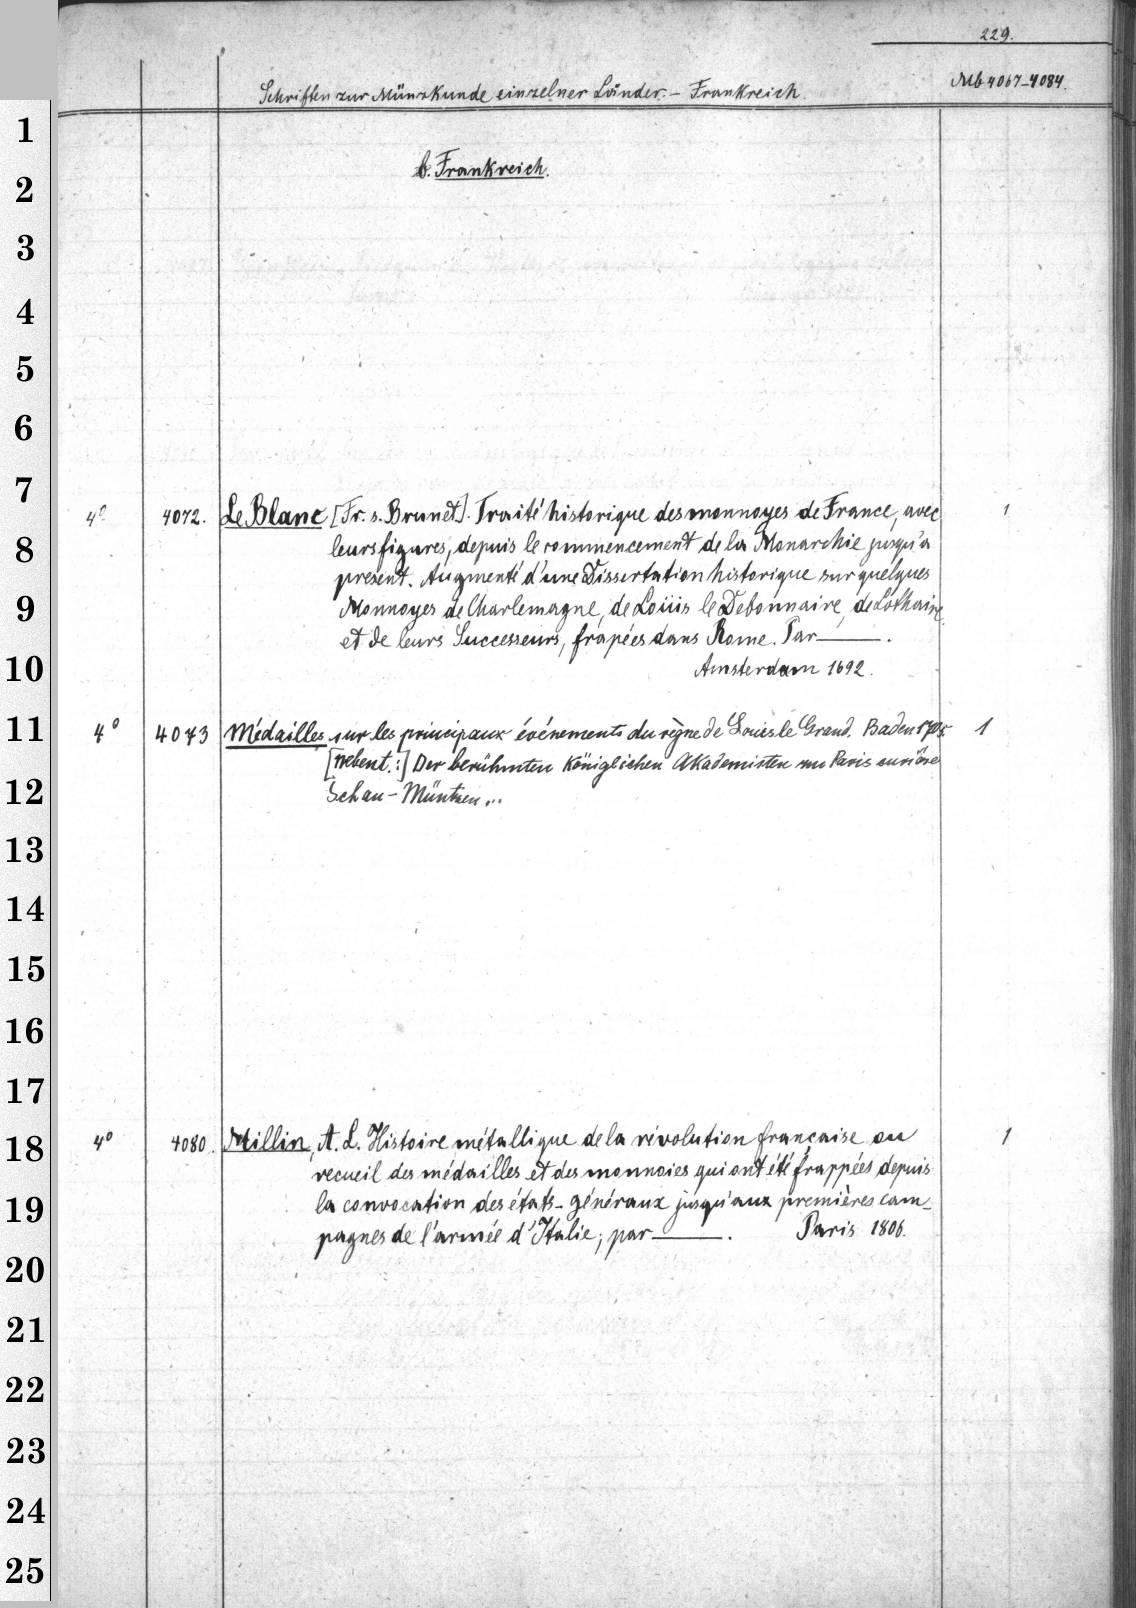 229.
Schriften zur Münzkunde einzelner Länder. – Frankreich.
Mb 4067–4084.
b. Frankreich.
4° 4072. Le Blanc [Fr. s. Brunet]. Traité historique des monnoyes de France, avec 1
leurs figures, depuis le commencement de la Monarchie jusqu'a
present. Augmenté d'une Dissertation historique sur quelques
Monnoyes de Charlemagne, de Loüis le Debonnaire, de Lothaire,
et de leurs Successeurs, frapées dans Rome. Par ———.
Amsterdam 1692.
4° 4073 Médailles sur les principaux événements du règne de Louis le Grand. Baden 1705. 1
[nebent.:] Der berühmten Königlichen Akademisten zu Paris curiöse
Schau-Müntzen...
4° 4080. Millin, A. L. Histoire métallique de la révolution française ou 1
recueil des médailles et des monnoies qui ont été frappées depuis
la convocation des états-généraux jusqu'aux premières cam-
pagnes de l'armée d'Italie; par ———. Paris 1806.
1
2
3
4
5
6
7
8
9
10
11
12
13
14
15
16
17
18
19
20
21
22
23
24
25